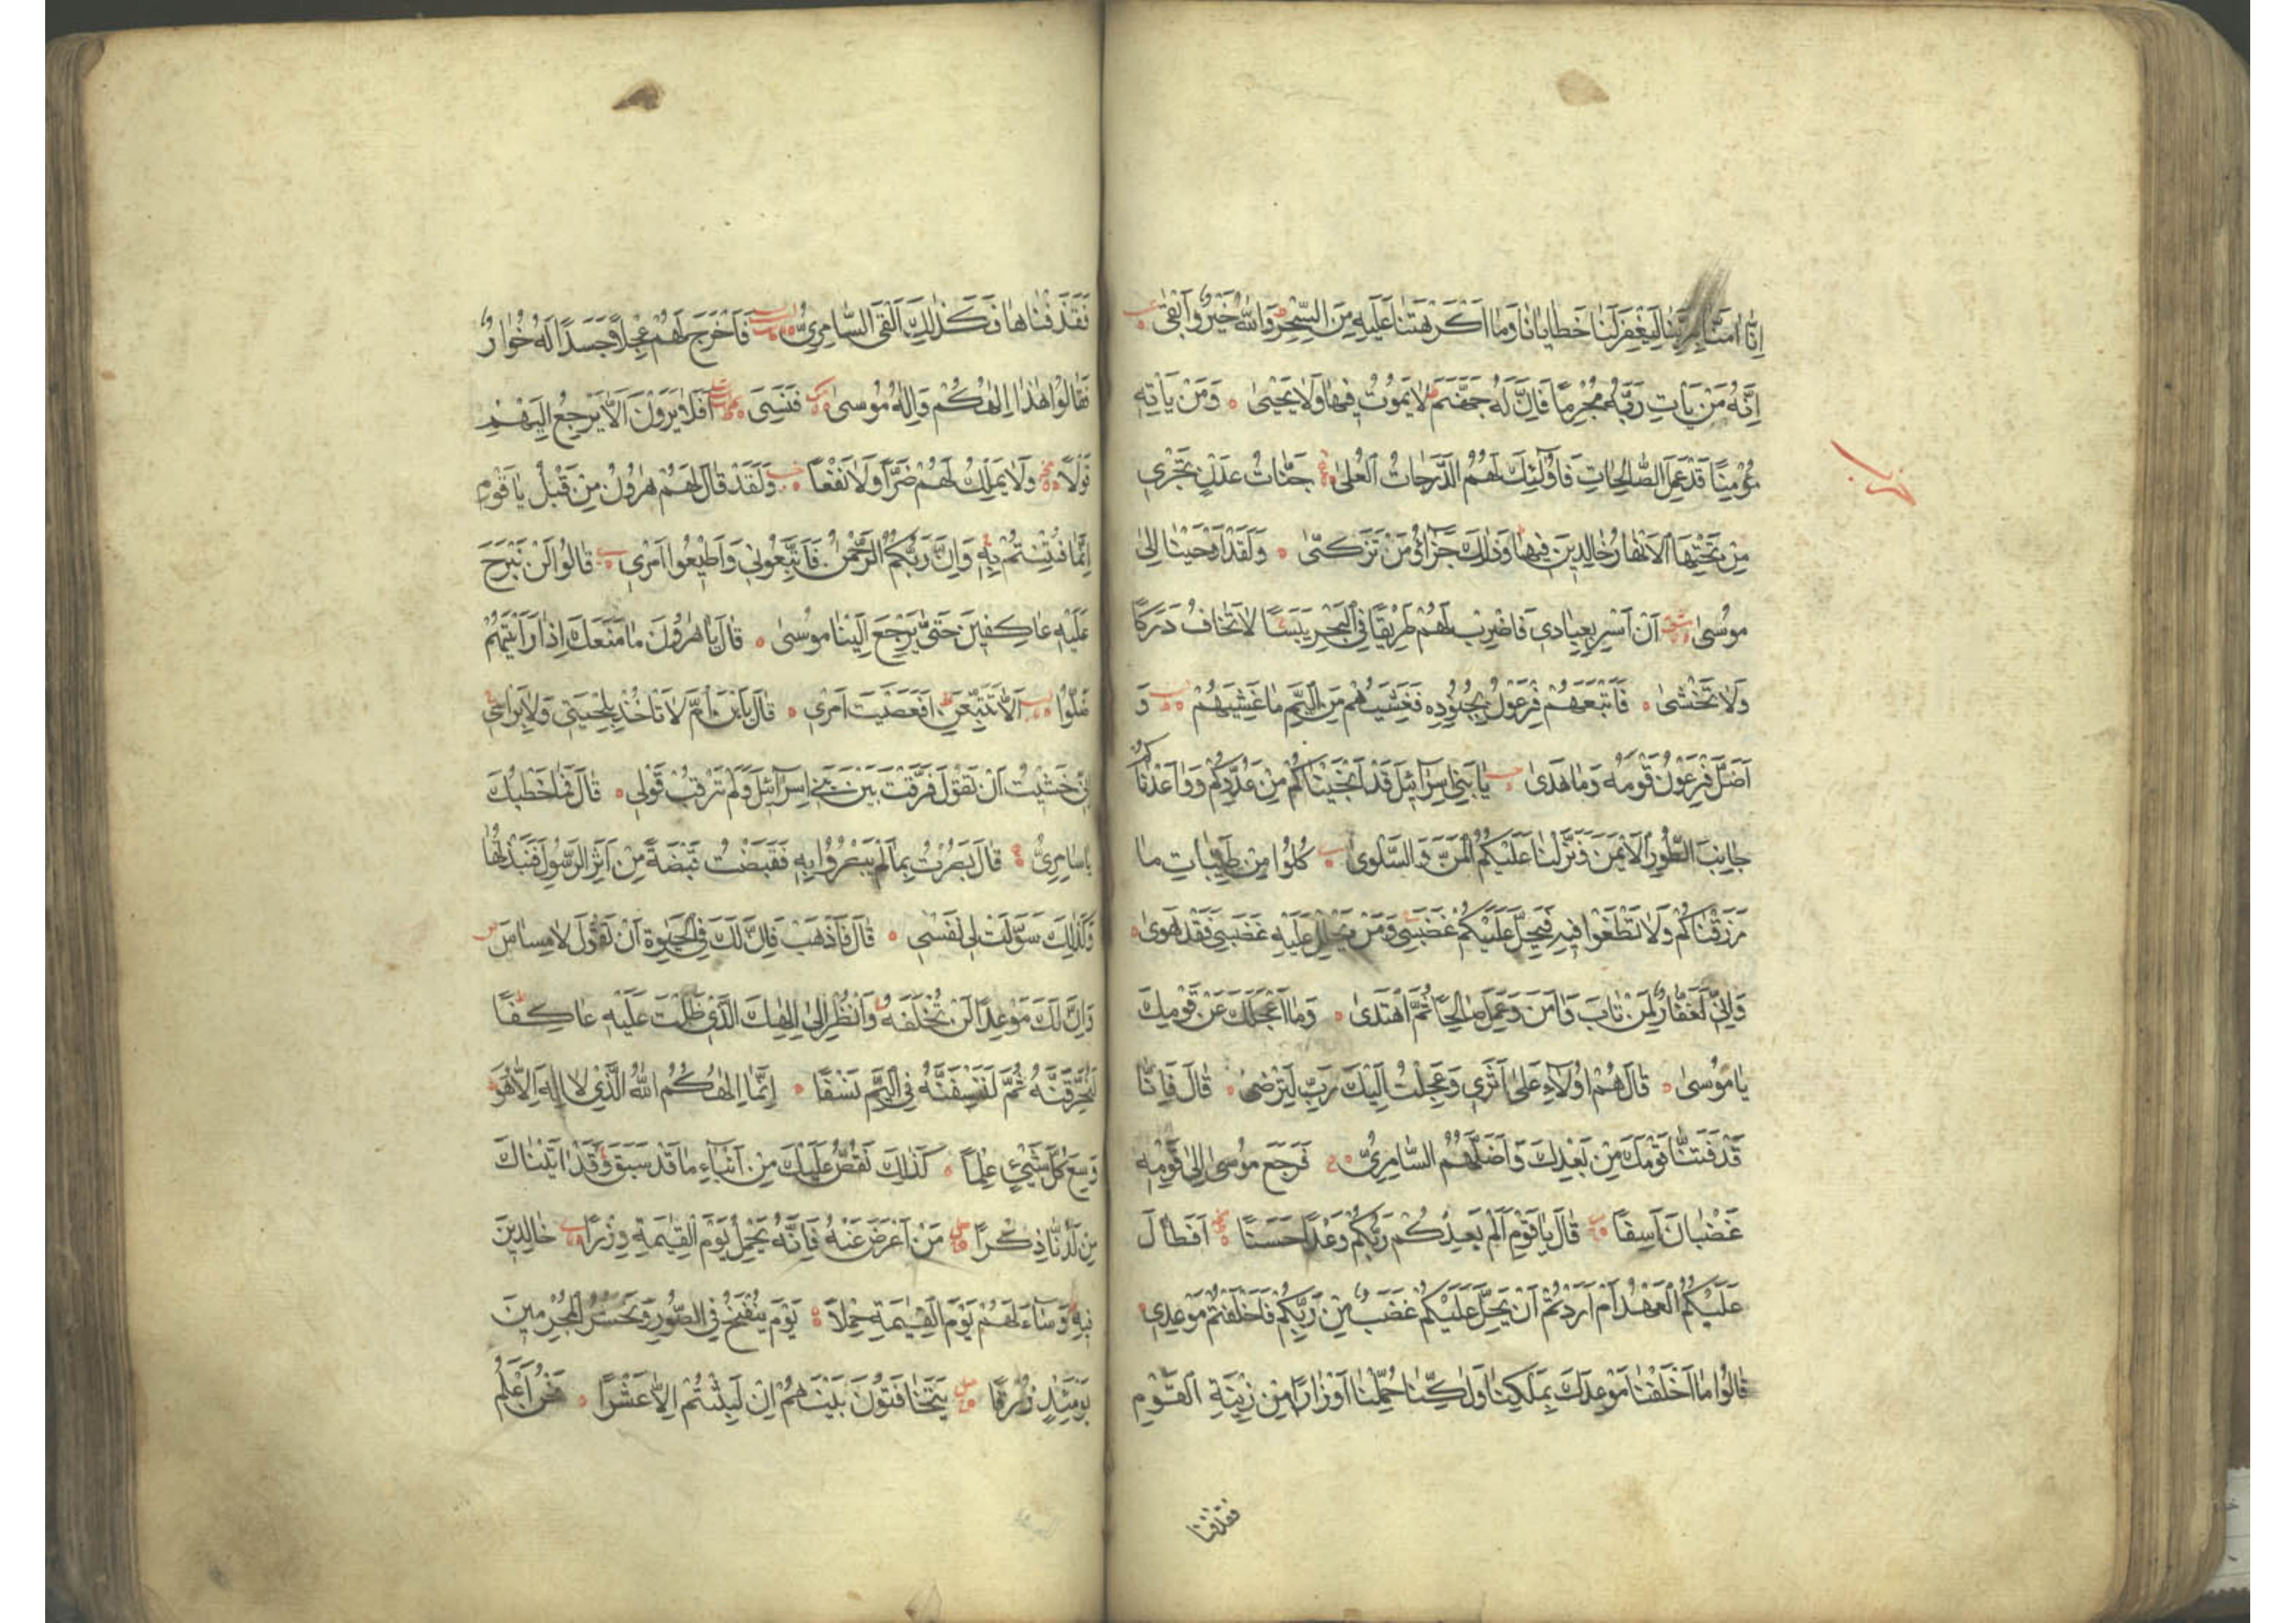 اِنَّا اٰمَنَّا بِرَبِّنَا لِيَغْفِرَ لَنَا خَطَايَانَا وَمَا اَكْرَهْتَنَا عَلَيْهِ مِنَ السِّحْرِ وَاللّٰهُ خَيْرٌ وَاَبْقٰى
اِنَّهُ مَنْ يَاْتِ رَبَّهُ مُجْرِمًا فَاِنَّ لَهُ جَهَنَّمَ لَا يَمُوتُ فِيهَا وَلَا يَحْيٰى وَمَنْ يَاْتِهِ
مُؤْمِنًا قَدْ عَمِلَ الصَّالِحَاتِ فَاُولٰئِكَ لَهُمُ الدَّرَجَاتُ الْعُلٰى جَنَّاتُ عَدْنٍ تَجْرِي
مِنْ تَحْتِهَا الْاَنْهَارُ خَالِدِينَ فِيهَا وَذٰلِكَ جَزٰٓؤُ مَنْ تَزَكّٰى وَلَقَدْ اَوْحَيْنَا اِلٰى
مُوسٰى اَنْ اَسْرِ بِعِبَادِي فَاضْرِبْ لَهُمْ طَرِيقًا فِي الْبَحْرِ يَبَسًا لَا تَخَافُ دَرَكًا
وَلَا تَخْشٰى فَاَتْبَعَهُمْ فِرْعَوْنُ بِجُنُودِهِ فَغَشِيَهُمْ مِنَ الْيَمِّ مَا غَشِيَهُمْ وَ
اَضَلَّ فِرْعَوْنُ قَوْمَهُ وَمَا هَدٰى يَا بَنِي اِسْرَآئِيلَ قَدْ اَنْجَيْنَاكُمْ مِنْ عَدُوِّكُمْ وَوَاعَدْنَاكُمْ
جَانِبَ الطُّورِ الْاَيْمَنَ وَنَزَّلْنَا عَلَيْكُمُ الْمَنَّ وَالسَّلْوٰى كُلُوا مِنْ طَيِّبَاتِ مَا
رَزَقْنَاكُمْ وَلَا تَطْغَوْا فِيهِ فَيَحِلَّ عَلَيْكُمْ غَضَبِي وَمَنْ يَحْلِلْ عَلَيْهِ غَضَبِي فَقَدْ هَوٰى
وَاِنِّي لَغَفَّارٌ لِمَنْ تَابَ وَاٰمَنَ وَعَمِلَ صَالِحًا ثُمَّ اهْتَدٰى وَمَا اَعْجَلَكَ عَنْ قَوْمِكَ
يَا مُوسٰى قَالَ هُمْ اُولَاءِ عَلٰى اَثَرِي وَعَجِلْتُ اِلَيْكَ رَبِّ لِتَرْضٰى قَالَ فَاِنَّا
قَدْ فَتَنَّا قَوْمَكَ مِنْ بَعْدِكَ وَاَضَلَّهُمُ السَّامِرِيُّ فَرَجَعَ مُوسٰى اِلٰى قَوْمِهِ
غَضْبَانَ اَسِفًا قَالَ يَا قَوْمِ اَلَمْ يَعِدْكُمْ رَبُّكُمْ وَعْدًا حَسَنًا اَفَطَالَ
عَلَيْكُمُ الْعَهْدُ اَمْ اَرَدْتُمْ اَنْ يَحِلَّ عَلَيْكُمْ غَضَبٌ مِنْ رَبِّكُمْ فَاَخْلَفْتُمْ مَوْعِدِي
قَالُوا مَا اَخْلَفْنَا مَوْعِدَكَ بِمَلْكِنَا وَلٰكِنَّا حُمِّلْنَا اَوْزَارًا مِنْ زِينَةِ الْقَوْمِ
فقذفنا
حزب
فَقَذَفْنَاهَا فَكَذٰلِكَ اَلْقَى السَّامِرِيُّ فَاَخْرَجَ لَهُمْ عِجْلًا جَسَدًا لَهُ خُوَارٌ
فَقَالُوا هٰذَا اِلٰهُكُمْ وَاِلٰهُ مُوسٰى فَنَسِيَ اَفَلَا يَرَوْنَ اَلَّا يَرْجِعُ اِلَيْهِمْ
قَوْلًا وَلَا يَمْلِكُ لَهُمْ ضَرًّا وَلَا نَفْعًا وَلَقَدْ قَالَ لَهُمْ هٰرُونُ مِنْ قَبْلُ يَا قَوْمِ
اِنَّمَا فُتِنْتُمْ بِهِ وَاِنَّ رَبَّكُمُ الرَّحْمٰنُ فَاتَّبِعُونِي وَاَطِيعُوا اَمْرِي قَالُوا لَنْ نَبْرَحَ
عَلَيْهِ عَاكِفِينَ حَتّٰى يَرْجِعَ اِلَيْنَا مُوسٰى قَالَ يَا هٰرُونُ مَا مَنَعَكَ اِذْ رَاَيْتَهُمْ
ضَلُّوا اَلَّا تَتَّبِعَنِ اَفَعَصَيْتَ اَمْرِي قَالَ يَا ابْنَ اُمَّ لَا تَاْخُذْ بِلِحْيَتِي وَلَا بِرَاْسِي
اِنِّي خَشِيتُ اَنْ تَقُولَ فَرَّقْتَ بَيْنَ بَنِي اِسْرَآئِيلَ وَلَمْ تَرْقُبْ قَوْلِي قَالَ فَمَا خَطْبُكَ
يَا سَامِرِيُّ قَالَ بَصُرْتُ بِمَا لَمْ يَبْصُرُوا بِهِ فَقَبَضْتُ قَبْضَةً مِنْ اَثَرِ الرَّسُولِ فَنَبَذْتُهَا
وَكَذٰلِكَ سَوَّلَتْ لِي نَفْسِي قَالَ فَاذْهَبْ فَاِنَّ لَكَ فِي الْحَيٰوةِ اَنْ تَقُولَ لَا مِسَاسَ
وَاِنَّ لَكَ مَوْعِدًا لَنْ تُخْلَفَهُ وَانْظُرْ اِلٰى اِلٰهِكَ الَّذِي ظَلْتَ عَلَيْهِ عَاكِفًا
لَنُحَرِّقَنَّهُ ثُمَّ لَنَنْسِفَنَّهُ فِي الْيَمِّ نَسْفًا اِنَّمَا اِلٰهُكُمُ اللّٰهُ الَّذِي لَا اِلٰهَ اِلَّا هُوَ
وَسِعَ كُلَّ شَيْءٍ عِلْمًا كَذٰلِكَ نَقُصُّ عَلَيْكَ مِنْ اَنْبَاءِ مَا قَدْ سَبَقَ وَقَدْ اٰتَيْنَاكَ
مِنْ لَدُنَّا ذِكْرًا مَنْ اَعْرَضَ عَنْهُ فَاِنَّهُ يَحْمِلُ يَوْمَ الْقِيٰمَةِ وِزْرًا خَالِدِينَ
فِيهِ وَسَاءَ لَهُمْ يَوْمَ الْقِيٰمَةِ حِمْلًا يَوْمَ يُنْفَخُ فِي الصُّورِ وَنَحْشُرُ الْمُجْرِمِينَ
يَوْمَئِذٍ زُرْقًا يَتَخَافَتُونَ بَيْنَهُمْ اِنْ لَبِثْتُمْ اِلَّا عَشْرًا نَحْنُ اَعْلَمُ